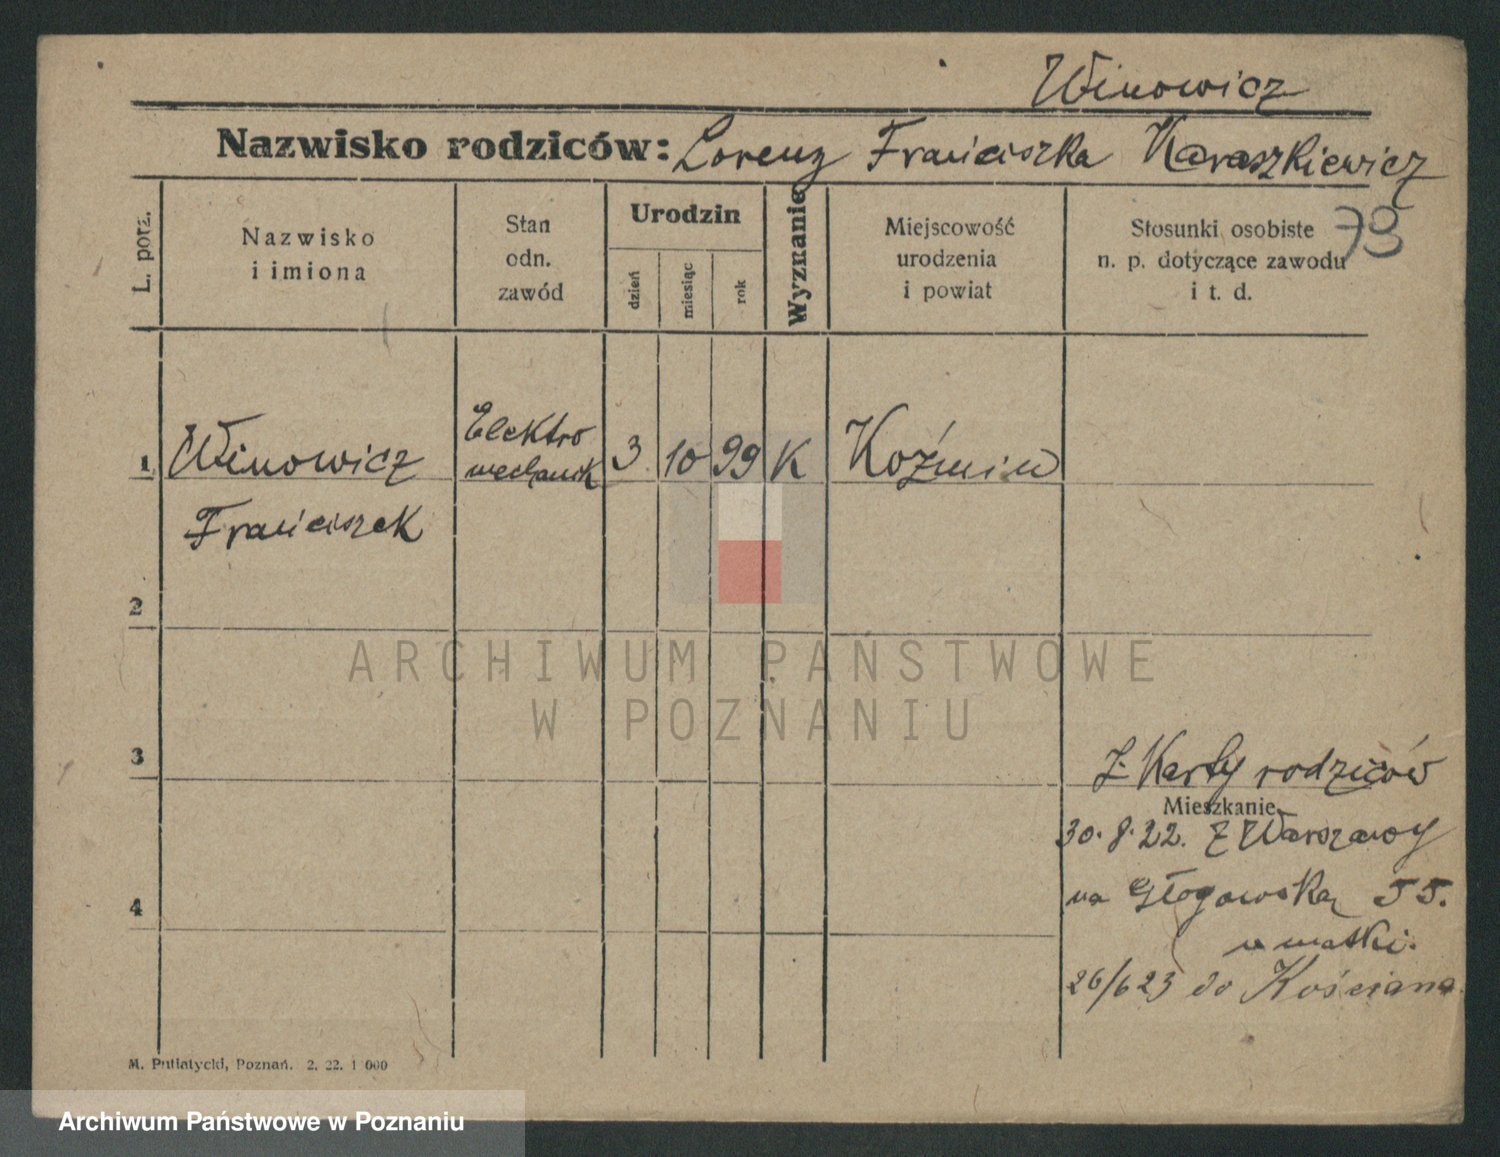 Winowicz
Nazwisko rodziców: Lorenz Franciszka Karaszkiewicz
79
L. porz.
Nazwisko
i imiona
Stan
odn.
zawód
Urodzin
dzień
miesiąc
rok
Wyznanie
Miejscowość
urodzenia
i powiat
Stosunki osobiste
n. p. dotyczące zawodu
i t. d.
1 Winowicz Elektro mechanik 3 10 99 K Koźmin
Franciszek
2
3
4
Z Karty rodziców
Mieszkanie
30.8.22. Z Warszawy
na Głogowska 55.
u matki.
26/6 23 do Kościana
M. Putiatycki, Poznań. 2. 22. 1 000
ARCHIWUM PAŃSTWOWE
W POZNANIU
Archiwum Państwowe w Poznaniu